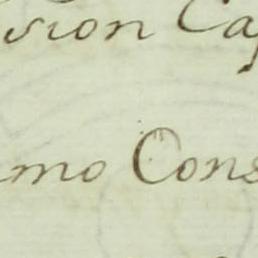 sion Ca
mo Cons